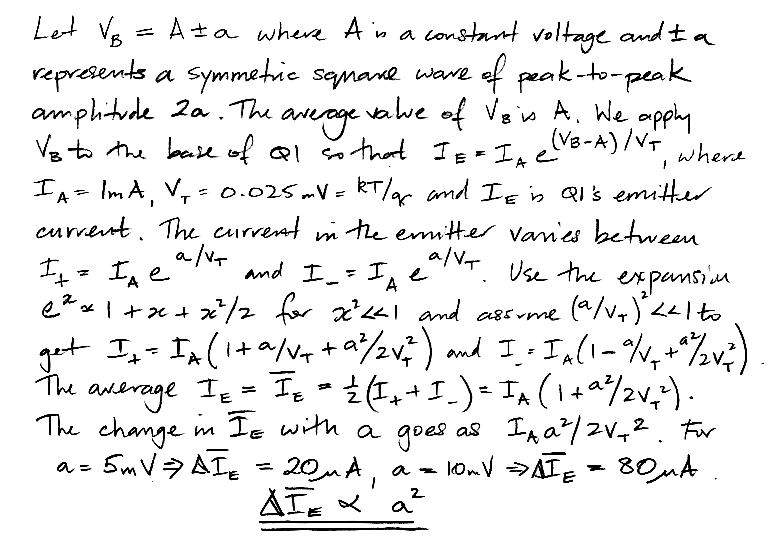 Let V_B = A ± a where A is a constant voltage and ± a
represents a symmetric square wave of peak-to-peak
amplitude 2a. The average value of V_B is A. We apply
V_B to the base of Q1 so that I_E = I_A e^(V_B-A)/V_T, where
I_A = 1mA, V_T = 0.025 mV = kT/q and I_E is Q1's emitter
current. The current in the emitter varies between
I_+ = I_A e^a/V_T and I_- = I_A e^a/V_T. Use the expansion
e^x ≈ 1 + x + x²/2 for x² << 1 and assume (a/V_T)² << 1 to
get I_+ = I_A(1 + a/V_T + a²/2V_T²) and I_- = I_A(1 - a/V_T + a²/2V_T²).
The average I_E = I̅_E = ½(I_+ + I_-) = I_A(1 + a²/2V_T²).
The change in I̅_E with a goes as I_A a²/2V_T². For
a = 5mV ⇒ ΔI̅_E = 20uA, a = 10mV ⇒ ΔI̅_E = 80uA
ΔI̅_E ∝ a²